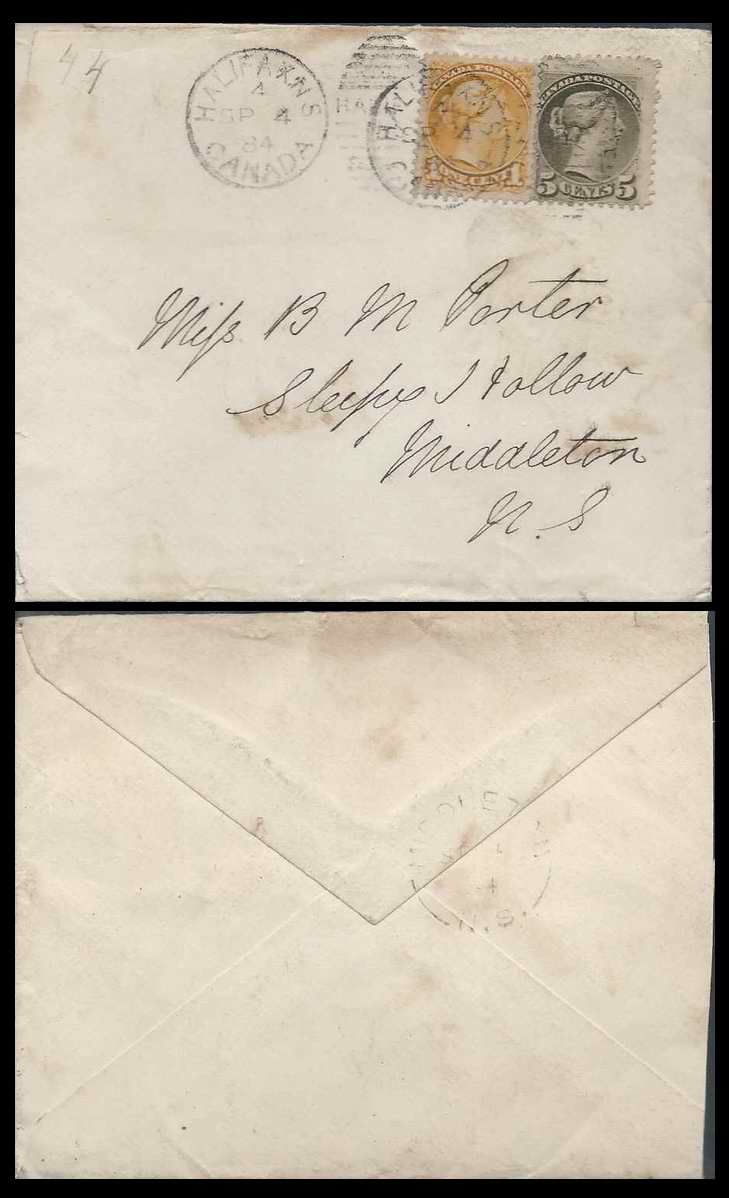 44
HALIFAX N S
4
SP 4
84
CANADA
HA
HALI
CANADA POSTAGE
1 1
CANADA POSTAGE
5 CENTS 5
Miss B M Porter
Sleepy Hollow
Middleton
N. S
4
N.S.